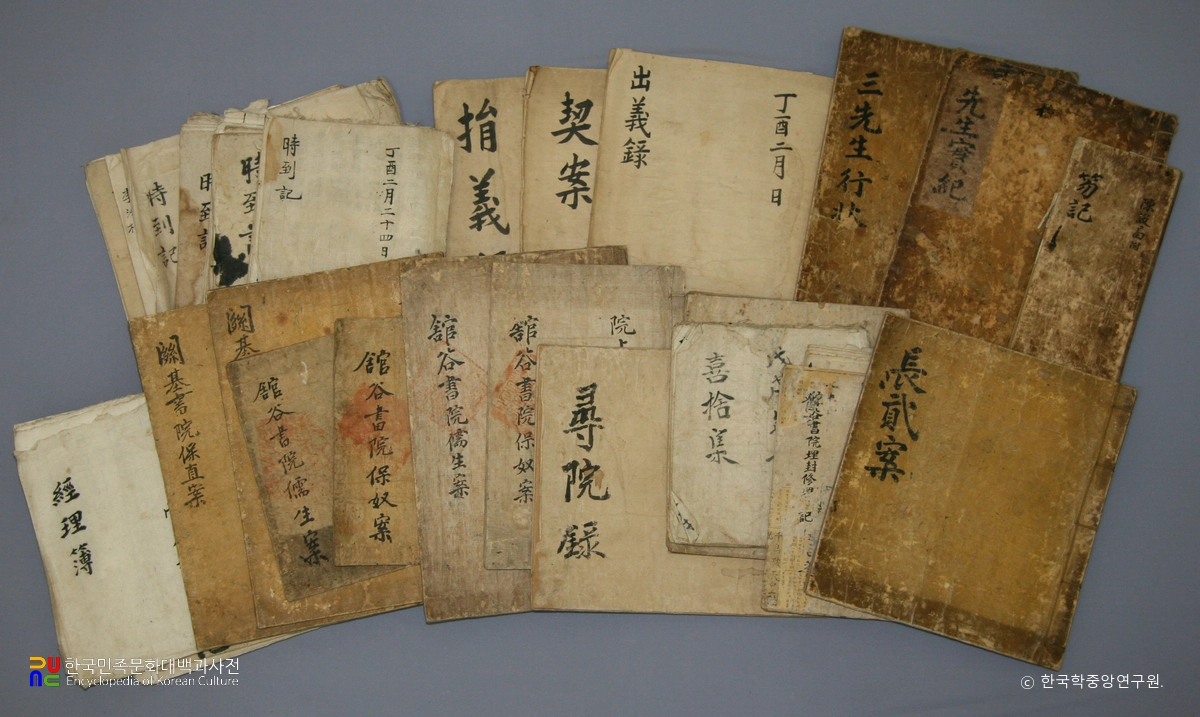 時到記
時到
時到
時到記
丁酉二月二十四日
捐義
契案
出義錄
丁酉二月 日
三先生行狀
先生實紀
笏記
關基書院保直案
關基
館谷書院儒生案
館谷書院保奴案
館谷書院儒生案
館谷書院保奴案
院
尋院錄
喜捨集
館谷書院埋封修 記
貳案
經理簿
한국민족문화대백과사전
Encyclopedia of Korean Culture
ⓒ 한국학중앙연구원.